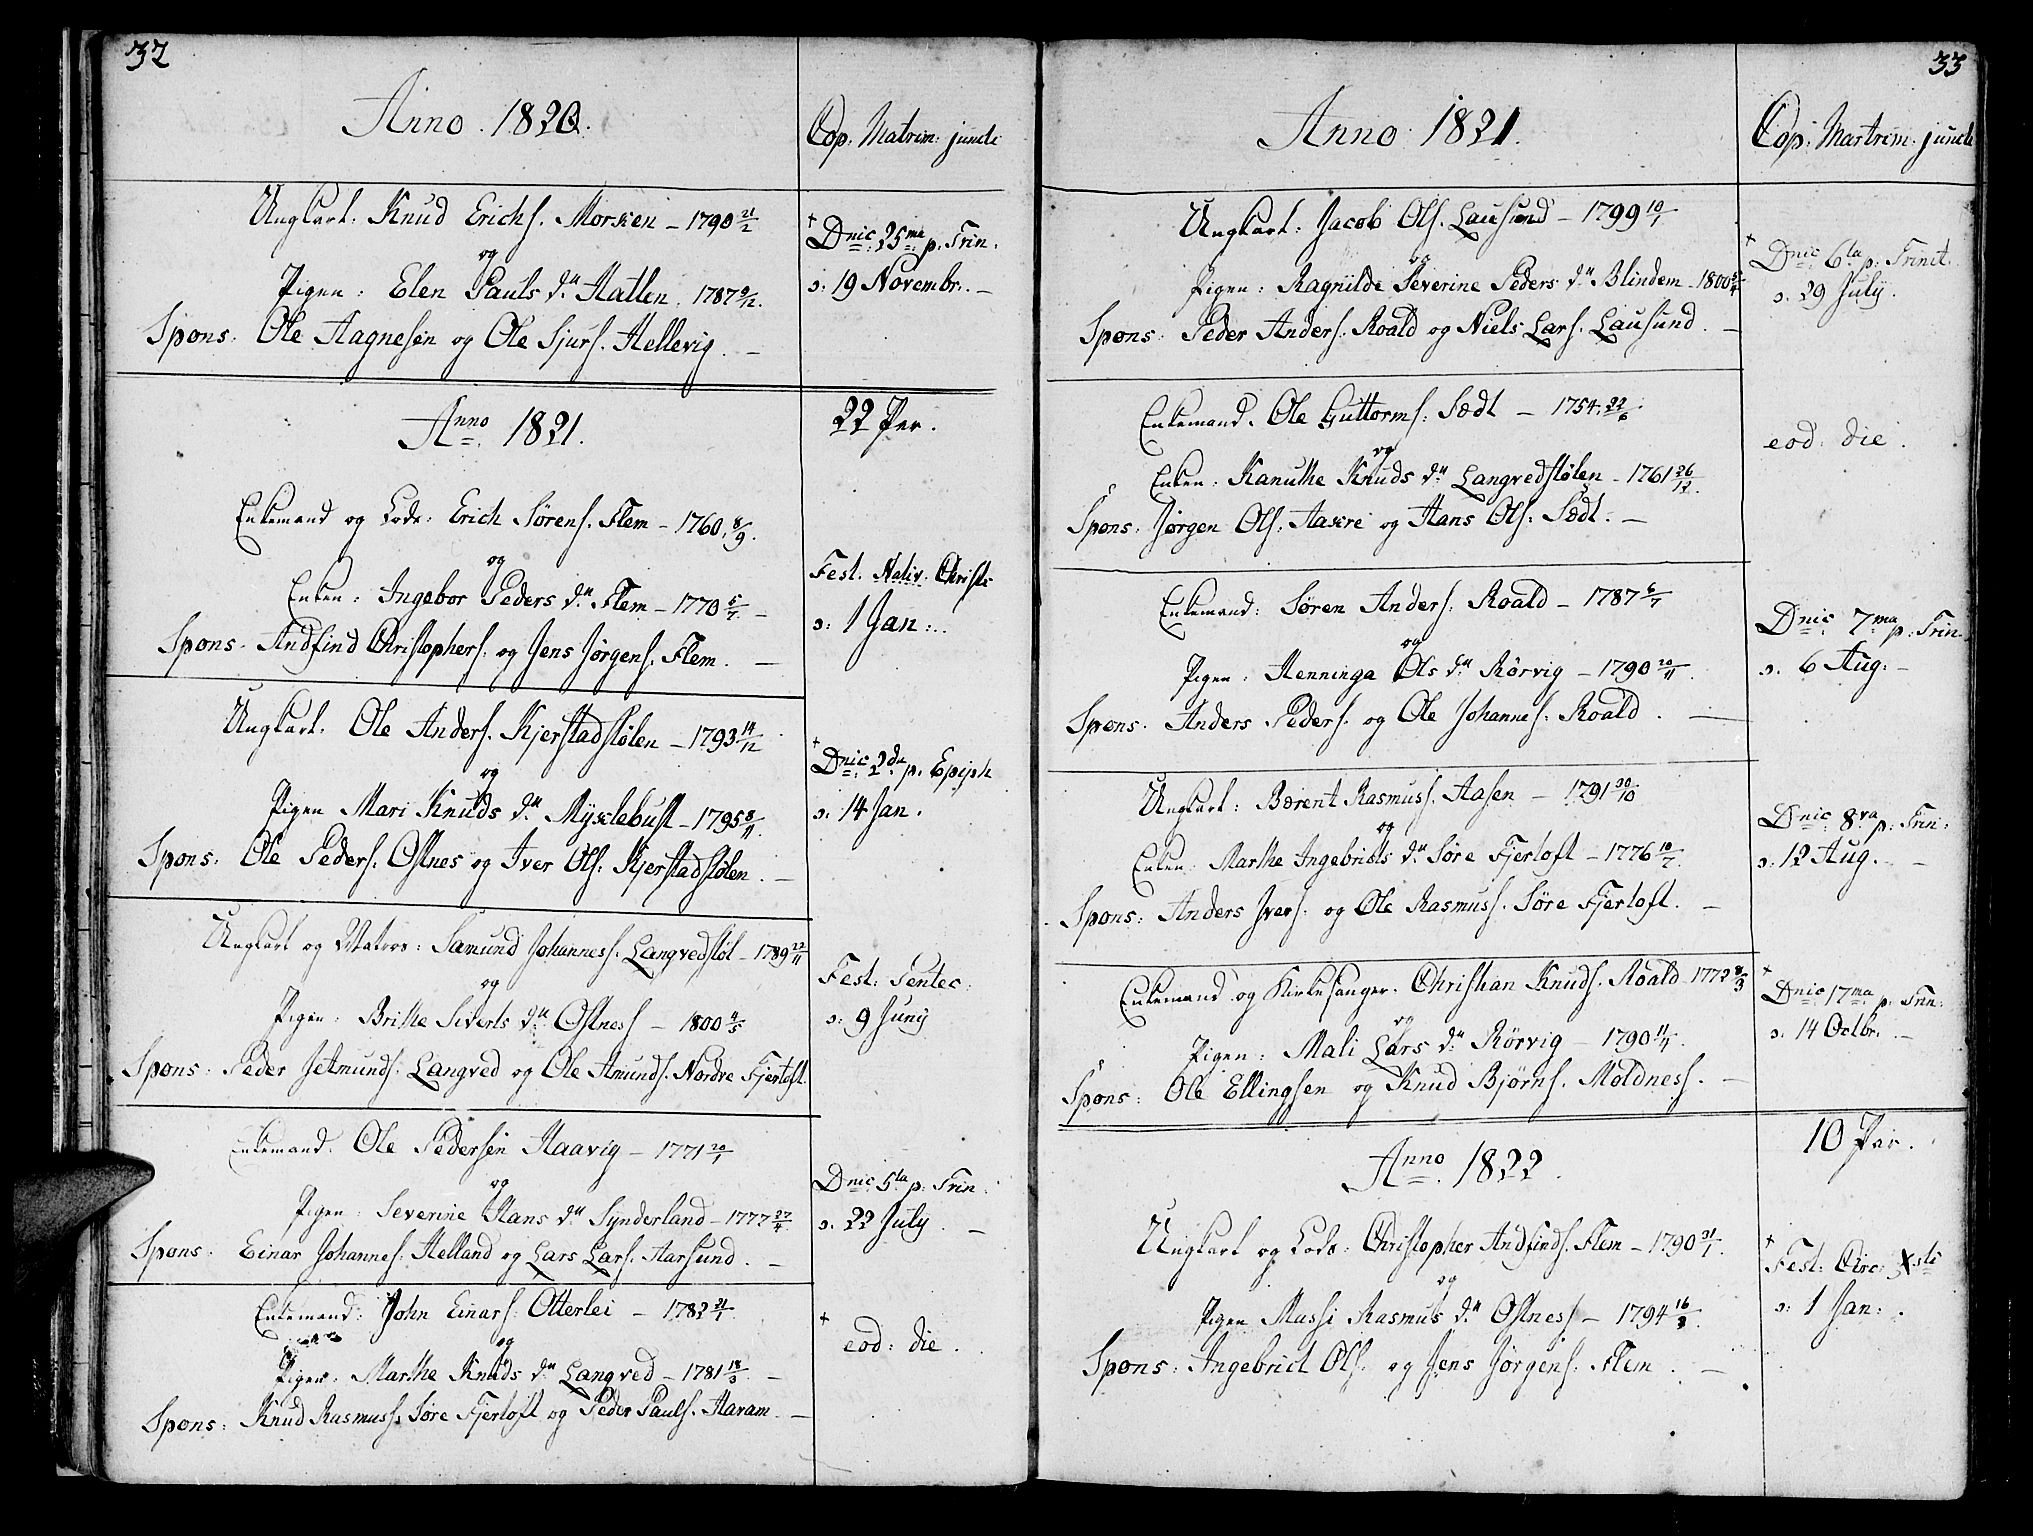 32
Anno. 1820.
Cop. Matrim: juncti
Ungkarl: Knud Erichs. Morsken – 1790 21/2
og
Pigen: Elen Pauls d:r Hatlen. 1787 9/12.
Spons: Ole Aagnesen og Ole Sjurs. Hellevig. –
+ Dnic: 25ma p. Trin.
ɔ: 19 Novembr. –
Anno 1821.
22 Par.
Enkemand og Lods: Erich Sörens. Flem – 1760. 8/9.
og
Enken: Ingebor Peders d:r Flem – 1770 5/7. –
Spons. Andfind Christophers. og Jens Jörgens. Flem. –
Fest. Nativ. Christi
ɔ: 1 Jan:.
Ungkarl. Ole Anders. Kjerstadstölen – 1793 14/12
og
Pigen Mari Knuds d:r Mysclebust – 1795 8/11.
Spons: Ole Peders. Ostnes og Iver Ols: Kjerstadstölen. –
+ Dnic: 2da p. Epiph
ɔ: 14 Jan.
Ungkarl og Matros: Samund Johanness. Langvedstöl – 1789 22/11
og
Pigen: Brithe Siverts d:r Ostness – 1800 4/5
Spons: Peder Jetmunds: Langved og Ole Amunds. Nordre Fjertoft.
Fest: Pentec:
ɔ: 9 Juny
Enkemand. Ole Pedersen Haavig – 1771 20/1
og
Pigen: Severine Hans d:r Synderland – 1777 27/4.
Spons: Einar Johannes. Helland og Lars Lars. Aarsund. –
Dnic: 5ta p: Trin:
ɔ. 22 July. –
Enkemand: John Einars: Otterlei – 1782 21/1.
og
Pigen: Marthe Knuds d:r Langved – 1781 18/3 –
Spons: Knud Rasmuss. Söre Fjertoft og Peder Pauls. Haram. –
+ eod: die.
33
Anno 1821.
Cop: Martrim. juncti
Ungkarl: Jacob Ols. Lausund – 1799 10/1
og
Pigen: Ragnilde Severine Peders d:r Blindem – 1800 5/4
Spons: Peder Anders. Roald og Niels Lars. Lausund. –
+ Dnic 6ta p: Trinit.
ɔ. 29 July.
Enkemand. Ole Guttorms: Sædt – 1754. 22/6.
og
Enken: Kanuthe Knuds d:r Langvedstölen – 1761 26/12.
Spons: Jörgen Ols. Aakre og Hans Ols: Sædt. –
eod: die.
Enkemand: Sören Anders: Roald – 1787 6/7
og
Pigen: Henninga Ols d:r Rörvig – 1790 20/11.
Spons: Anders Peders. og Ole Johannes: Roald. –
Dnic: 7ma p: Trin.
ɔ. 6 Aug: –
Ungkarl: Bærent Rasmuss. Aasen – 1791 30/10
og
Enken: Marthe Ingebrigts d:r Söre Fjertoft – 1776 10/7.
Spons: Anders Ivers. og Ole Rasmuss. Söre Fjertoft. –
Dnic: 8va p: Trin:
ɔ. 12 Aug. –
Enkemand og Kirkesanger. Christian Knuds. Roald 1772 8/3
og
Pigen: Mali Lars d:r Rörvig – 1790 11/11.
Spons: Ole Ellingsen og Knud Björns. Moldness. –
+ Dnic 17ma p. Trin:
ɔ. 14 Octbr. –
10 Par.
Anno 1822.
Ungkarl og Lods: Christopher Andfinds. Flem – 1790 31/1.
og
Pigen Massi Rasmus d:r Ostness – 1794 16/3.
Spons: Ingebrict Ols. og Jens Jörgens: Flem. –
+ Fest: Circ: Xsti
ɔ: 1 Jan:.